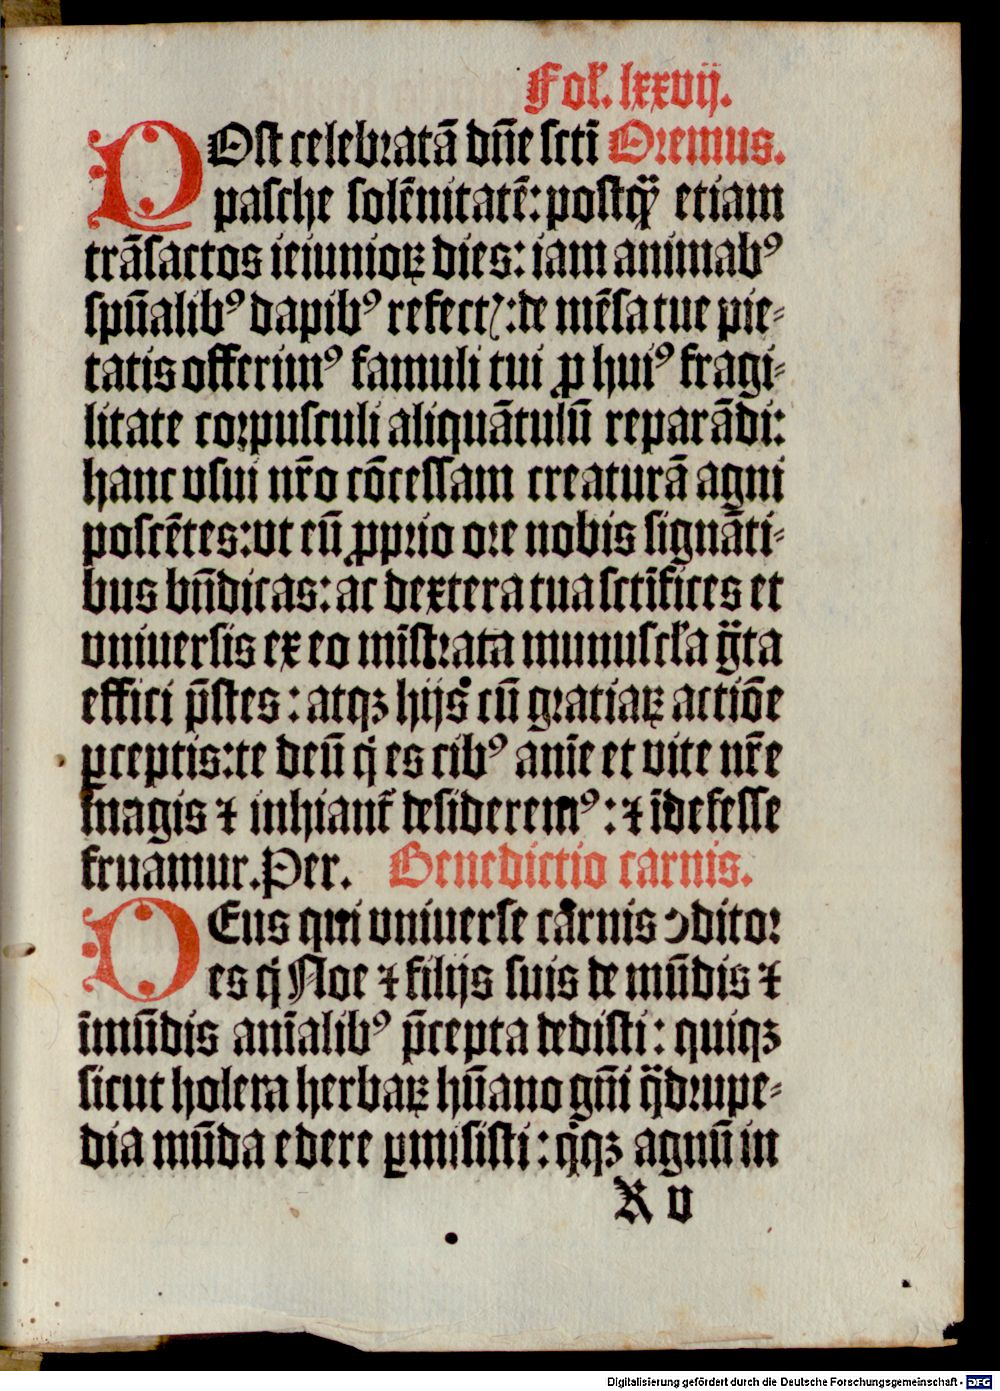 Fol. lxxvij.
POst celebratā dn̄e scti Oremus.
pasche solēnitatē: postq̄ꝫ etiam
trāsactos ieiunioꝝ dies: iam animabꝰ
spūalibꝰ dapibꝰ refect: de mēsa tue pie⸗
tatis offerimꝰ famuli tui ꝓ huiꝰ fragi⸗
litate corpusculi aliquātulū reparādi:
hanc vsui nr̄o cōcessam creaturā agni
poscētes: vt eū ꝓprio ore nobis signāti⸗
bus bn̄dicas: ac dextera tua sctīfices et
vniuersis ex eo mīstrata munuscl̄a ḡta
effici p̄stes: atqꝫ hijs cū gratiaꝝ actiōe
ꝑceptis: te deū q̇ es cibꝰ anīe et vite nr̄e
magis ⁊ inhiant̄ desideremꝰ: ⁊ īdefesse
fruamur. Per. Benedictio carnis.
DEus qui vniuerse carnis ↄditor
es q̇ Noe ⁊ filijs suis de mūdis ⁊
īmūdis anīalibꝰ p̄cepta dedisti: quiqꝫ
sicut holera herbaꝝ hūano gn̄i q̄drupe⸗
dia mūda edere ꝑmisisti: q̇qꝫ agnū in
K v
Digitalisierung gefördert durch die Deutsche Forschungsgemeinschaft - DFG